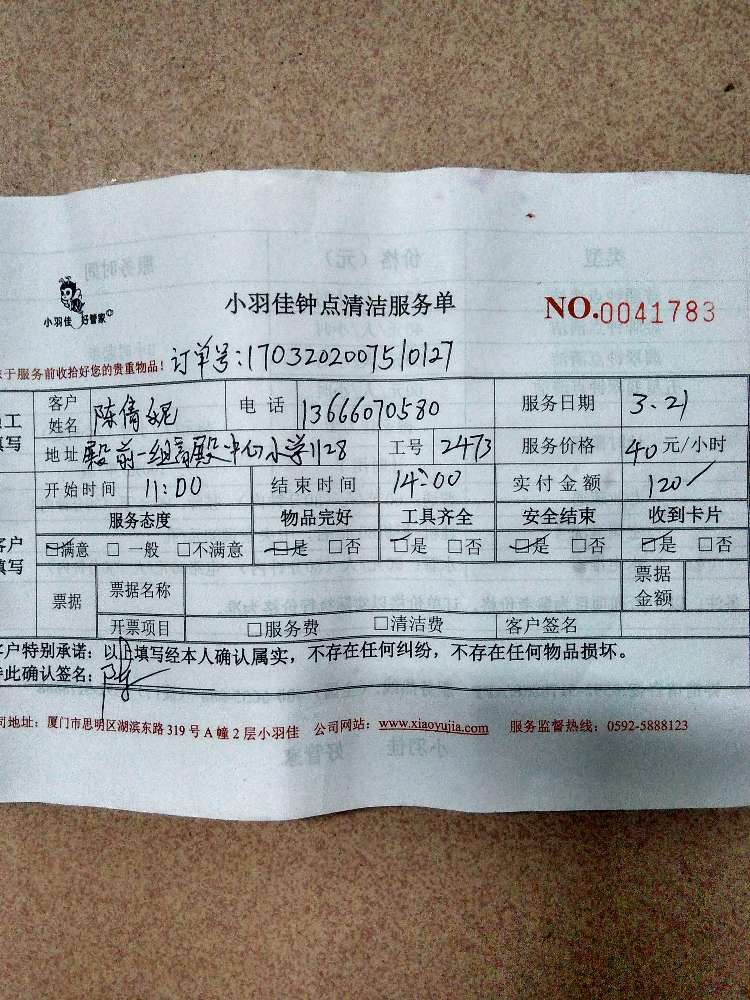 小羽佳 好管家
小羽佳钟点清洁服务单
NO.0041783
于服务前收拾好您的贵重物品！ 订单号:1703202007510127
工 填写 客户姓名 陈倩妮 电话 13666070580 服务日期 3.21
地址 殿前一组 殿中心小学1128 工号 2473 服务价格 40元/小时
开始时间 11:00 结束时间 14:00 实付金额 120
服务态度 物品完好 工具齐全 安全结束 收到卡片
客户 填写 ☑满意 □一般 □不满意 ☑是 □否 ☑是 □否 ☑是 □否 ☑是 □否
票据 票据名称 票据金额
开票项目 □服务费 □清洁费 客户签名
户特别承诺：以上填写经本人确认属实，不存在任何纠纷，不存在任何物品损坏。
此确认签名：
司地址：厦门市思明区湖滨东路319号A幢2层小羽佳 公司网站：www.xiaoyujia.com 服务监督热线：0592-5888123